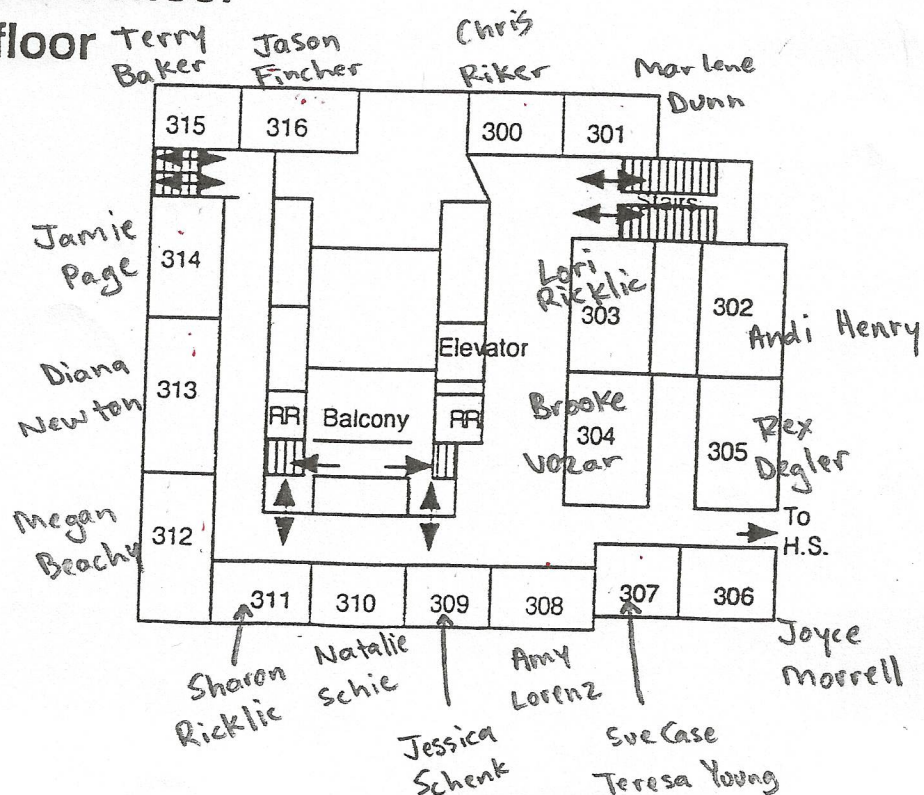 floor
Terry
Baker
Jason
Fincher
Chris
Riker
Marlene
Dunn
315
316
300
301
Stairs
Jamie
Page
314
Lori
Ricklic
303
302
Andi Henry
Elevator
Diana
Newton
313
RR
Balcony
RR
Brooke
304
Vozar
305
Rex
Degler
Megan
Beachy
312
To
H.S.
311
310
309
308
307
306
Sharon
Ricklic
Natalie
Schie
Jessica
Schenk
Amy
Lorenz
Sue Case
Teresa Young
Joyce
Morrell